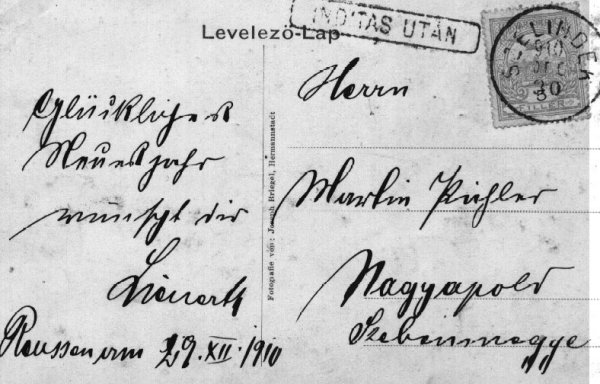 Levelező-Lap
INDÍTÁS UTÁN
SZELINDEK
910
30
FILLER
Glückliches
Neuesjahr
wünscht dir
Lienerth
Reussen am 29. XII. 1910
Fotografie von: Joseph Briegel, Hermannstadt
Herrn
Martin Pichler
Nagyapold
Szebenmegye